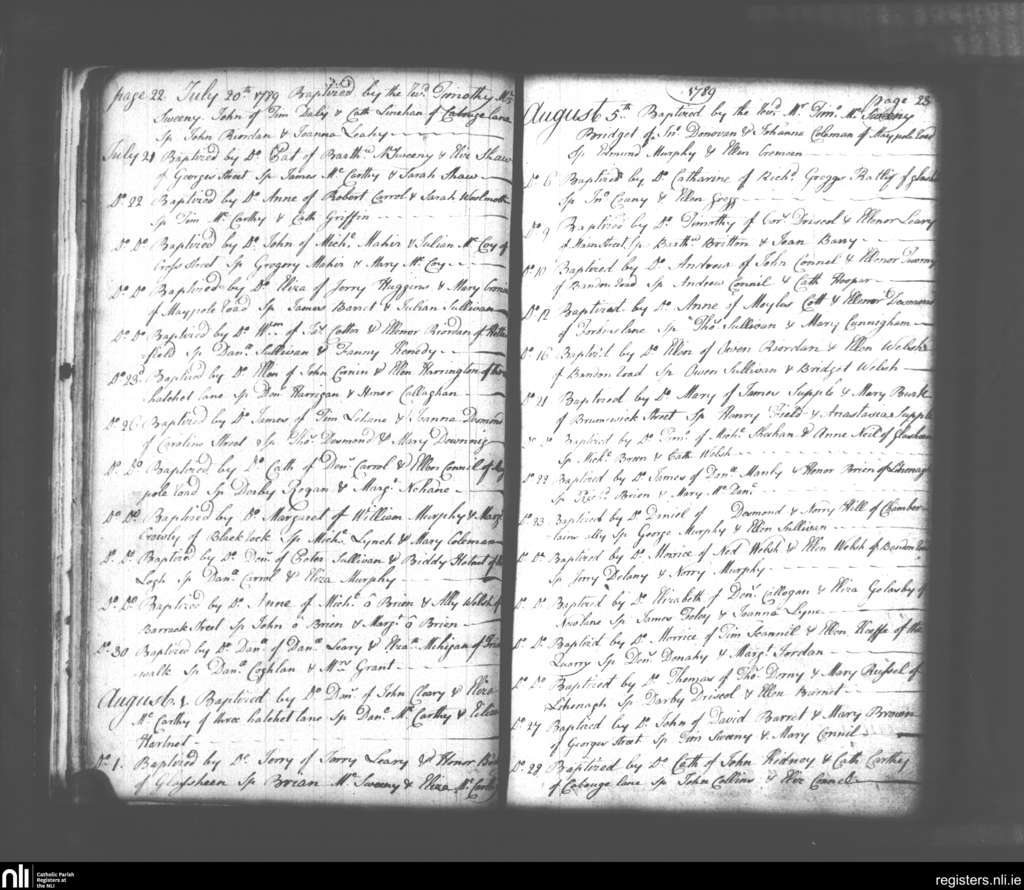 page 22. July 20th 1789 Baptized by the Revd. Timothy Mc
Sweeny. John of Tim Daly & Cath Linehan of Cabbage lane
Sp John Riordan & Joanna Leahy
July 21 Baptized by Do. Pat of Barthw. McSweeny & Eliz Shaw
of Georges Street Sp James Mc Carthy & Sarah Shaw
Do. 22 Baptized by Do. Anne of Robert Carrol & Sarah
Sp Tim Mc Carthy & Cath Griffin
Do. Do. Baptized by Do. John of Michl. Maher & Julian Mc Coy of
Cross Street Sp Gregory Maher & Mary Mc Coy
Do. Do. Baptized by Do. Eliza of Jerry Huggins & Mary Cronin
of Maypole road Sp James Barret & Julian Sullivan
Do. Do. Baptized by Do. Wm. of Cotter & Ellenor Riordan of
field Sp Danl. Sullivan & Fanny Kenedy
Do. 23d Baptized by Do. Ellen of John Cronin & Ellen Harrington of three
hatchet lane Sp Den Harrigan & Honor Callaghan
Do. 26 Baptized by Do. James of Tim Lehane & Joanna Desmond
of Caroline Street Sp Thos. Desmond & Mary Downing
Do. Do. Baptized by Do. Cath of Denis. Carrol & Ellen Connel of May
pole road Sp Darby Rogan & Margt. Nehane
Do. Do. Baptized by Do. Margaret of William Murphy & Margt
Crowly of Black rock Sp Michl. Lynch & Mary Coleman
Do. Do. Baptized by Do. Den. of Peter Sullivan & Biddy of the
Logh Sp Danl. Carrol & Eliza Murphy
Do. Do. Baptized by Do. Anne of Michl. o Brien & Ally Welsh of
Barrack Street Sp John o Brien & Margt. o Brien
Do. 30 Baptized by Do. Danl. of Danl. Leary & Eliza. Mehigan of
walk Sp Danl. Coghlan & Mrs Grant
August 1. Baptized by Do. Den. of John Cleary & Eliza
Mc Carthy of three hatchet lane Sp Danl. Mc Carthy &
Hartnet
Do. 1. Baptized by Do. Jerry of Jerry Leary & Honor
of Glassheen Sp Brian Mc Sweeny & Eliza Mc Carthy
1789
page 23
August 5th Baptized by the Revd. Mr Tim. Mc Sweeny
Bridget of Jno. Donovan & Johanna Coleman of Maypole Road
Sp Edmund Murphy & Ellen
Do. 6 Baptized by Do. Catharine of Richd. Groggs of
Sp Jno Crany & Ellen Grogg
Do. 9 Baptized by Do. Timothy of Cors. Driscol & Ellenor Leary
of Main Street Sp Barthw. Britton & Joan Barry
Do. 10 Baptized by Do. Andrew of John Connel & Ellenor Twomy
of Bandon road Sp Andrew Connil & Cath Hooper
Do. 12 Baptized by Do. Anne of Moyles Cott & Ellenor
of lane Sp Thos. Sullivan & Mary Cunnigham
Do. 16 Baptiz'd by Do. Ellen of Owen Riordan & Ellen Welsh
of Bandon road Sp Owen Sullivan & Bridget Welsh
Do. 21 Baptized by Do. Mary of James Supple & Mary Burk
of Brunswick Street Sp Henry Field & Anastasia Supple
Do. Do. Baptized by Do. Tim. of Michl. Shehan & Anne Neil of
Sp Michl. Breen & Cath Welsh
Do. 22 Baptized by Do. James of Danl. Manly & Honor Brien of Lehenagh
Sp Brien & Mary Mc
Do. 23 Baptized by Do. Daniel of Desmond & Norry Hill of Chamber
lains ally Sp George Murphy & Ellen Sullivan
Do. Do. Baptized by Do. Morrice of Ned Welsh & Ellen Welsh of Bandon road
Sp Jerry Delany & Norry Murphy
Do. Do. Baptized by Do. Elizabeth of Den. Callogan & Eliza of
New lane Sp James Foley & Joanna Lyne
Do. Do. Baptized by Do. Morrice of Tim Scannil & Ellen Keeffe of the
Quarry Sp Den. Donahy & Margt. Jordan
Do. Do. Baptized by Do. Thomas of Thos. Dorny & Mary Russel of
Lehenagh Sp Darby Driscol & Ellen Barnet
Do. 27 Baptized by Do. John of David Barret & Mary Brown
of Georges Street Sp Tim Sweeny & Mary Connil
Do. 28 Baptized by Do. Cath of John Kidney & Cath Carthy
of Cabouge lane Sp John Collins & Eliz
nli Catholic Parish
Registers at
the NLI
registers.nli.ie